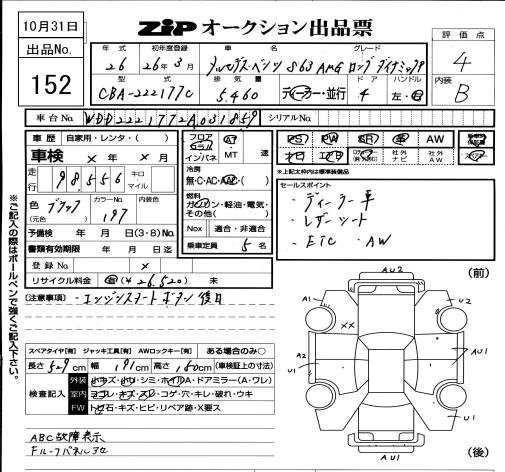 10月31日
ZIP オークション出品票
評価点
4
内装
B
出品No.
152
年式 初年度登録 車名 グレード
26 26年3月 メルセデス・ベンツ S63 AMG ロング ダイナミックP
型式 排気量 ドア ハンドル
CBA-222177C 5.460 ディーラー・並行 4 左・右
車台No. WDD2221772A031859 シリアルNo.
車歴 自家用・レンタ・( )
フロア コラム インパネ AT MT 速
PS PW SR 革 AW
車検 × 年 × 月
走行 98,556 キロ マイル
冷房 無・C・AC・AAC・( )
ナビ 社外AW
※上記太枠内は標準装備品
色(元色) ブラック カラーNo. 197 内装色
燃料 ガソリン・軽油・電気・その他( )
セールスポイント
・ディーラー車
・レザーシート
・ETC ・AW
予備検 年 月 日(3・8)No.
Nox 適合・非適合
書類有効期限 年 月 日迄
乗車定員 5 名
登録No. ×
リサイクル料金 有(¥26,520) 未
[注意事項]・エンジンスタートボタン後日
※ご記入の際はボールペンで強くご記入下さい。
(前)
AU2
A1 U2
××
A2 AU1
U1 U1
AU1
(後)
スペアタイヤ[有] ジャッキ工具[有] AWロックキー[有] ある場合のみ○
長さ 529 cm 幅 191 cm 高さ 150 cm (車検証上の寸法)
検査記入
外装 小キズ・小凹・シミ・ホイルA・ドアミラー(A・ワレ)
室内 ヨゴレ・キズ・スレ・コゲ・穴・キレ・破れ・ウキ
FW トビ石・キズ・ヒビ・リペア跡・X要ス
ABC故障表示